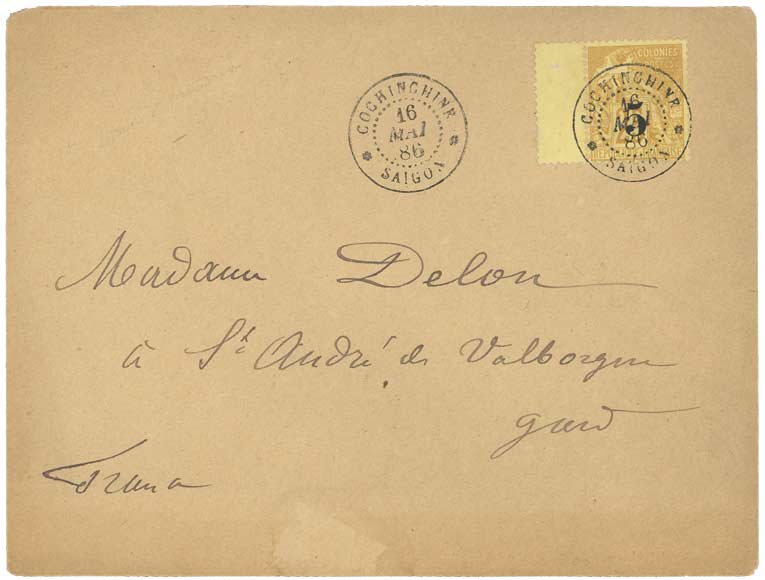 COCHINCHINE
16
MAI
86
SAIGON
COLONIES
COCHINCHINE
16
MAI
5
86
SAIGON
Madame Delon
à St André de Valborgne
Gard
France